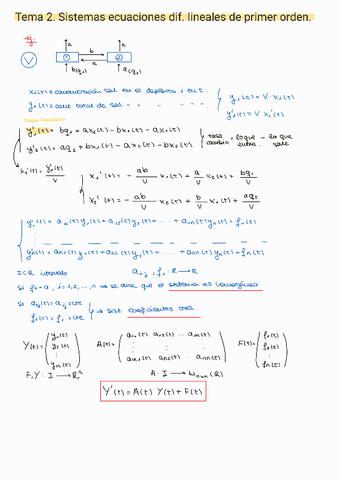 Tema 2. Sistemas ecuaciones dif. lineales de primer orden.
ej
V
a b 1 2 a
b(q₁) a(q₂)
xᵢ(t) = concentración sal en el depósito i en t.
yᵢ(t) = cant total de sal " " " "
yᵢ(t) = V · xᵢ(t)
yᵢ'(t) = V xᵢ'(t)
y₁'(t) = bq₁ + ax₂(t) - bx₁(t) - ax₁(t)
y₂'(t) = aq₂ + bx₁(t) - ax₂(t) - bx₂(t)
tasa cambio = lo que entra - lo que sale
xᵢ'(t) = yᵢ'(t)/V
x₁'(t) = - ab/V x₁(t) + a/V x₂(t) + bq₁/V
x₂'(t) = - ab/V x₂(t) + b/V x₁(t) + aq₂/V
y₁'(t) = a₁₁(t) y₁(t) + a₁₂(t) y₂(t) + ... + a₁ₙ(t) yₙ(t) + f₁(t)
yₙ'(t) = aₙ₁(t) y₁(t) + aₙ₂(t) y₂(t) + ... + aₙₙ(t) yₙ(t) + fₙ(t)
I⊂ℝ intervalo aᵢⱼ, fᵢ: I → ℝ
Si fᵢ = 0, i = 1, 2, ..., n → se dice que el sistema es homogéneo
Si aᵢⱼ(t) = aᵢⱼ = cte
fᵢ(t) = fᵢ = cte
→ Sist. coeficientes ctes
Y(t) = (y₁(t) y₂(t) ⋮ yₙ(t)) A(t) = (a₁₁(t) a₁₂(t) ... a₁ₙ(t) ⋮ aₙ₁(t) aₙ₂(t) ... aₙₙ(t)) F(t) = (f₁(t) f₂(t) ⋮ fₙ(t))
F, Y: I → ℝⁿ A: I → Mₙₓₙ(ℝ)
Y'(t) = A(t) Y(t) + F(t)